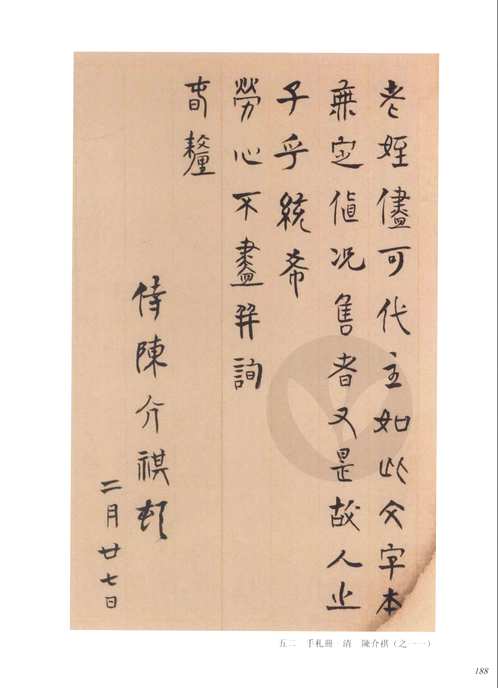 老姪儘可代主如此文字本
無定值況售者又是故人止
子乎統希
勞心不盡并詢
春釐
侍陳介祺頓
二月廿七日
五二 手札冊 清 陳介祺（之一一）
188